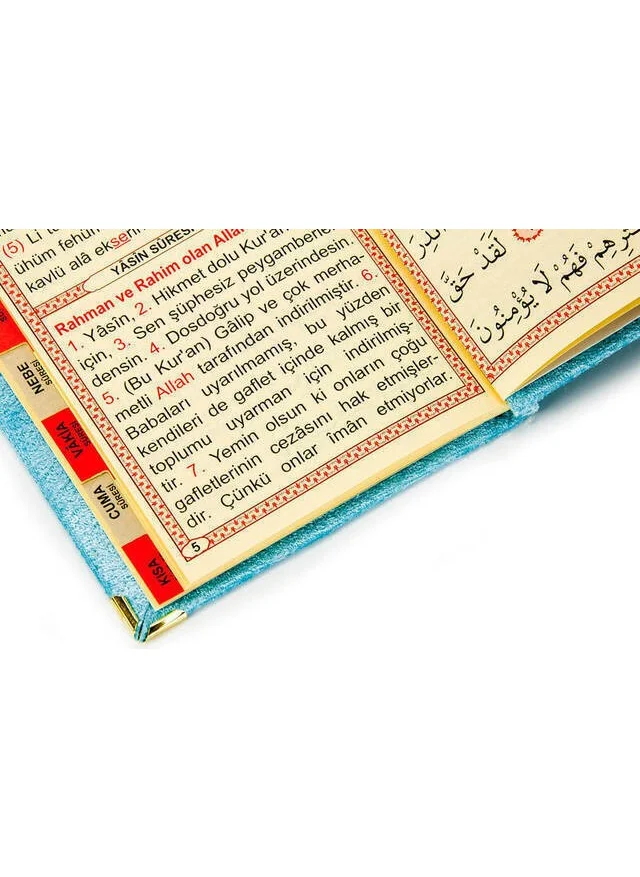 (5) Li
ühüm fehüm
kavlü alâ ekse
YÂSİN SÛRESİ
Rahman ve Rahim olan Allah
1. Yâsîn, 2. Hikmet dolu Kur'an
için, 3. Sen şüphesiz peygamberler-
densin. 4. Dosdoğru yol üzerindesin.
5. (Bu Kur'an) Gâlip ve çok merha-
metli Allah tarafından indirilmiştir. 6.
Babaları uyarılmamış, bu yüzden
kendileri de gaflet içinde kalmış bir
toplumu uyarman için indirilmiş-
tir. 7. Yemin olsun ki onların çoğu
gafletlerinin cezâsını hak etmişler-
dir. Çünkü onlar îmân etmiyorlar.
5
NEBE
SÛRESİ
VÂKIA
SÛRESİ
CUMA
SÛRESİ
KISA
لَقَدْ حَقَّ
فَهُمْ لَا يُؤْمِنُونَ